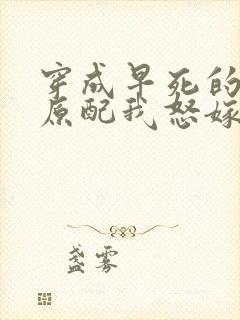 穿成早死的
原配我怒嫁
盏雾